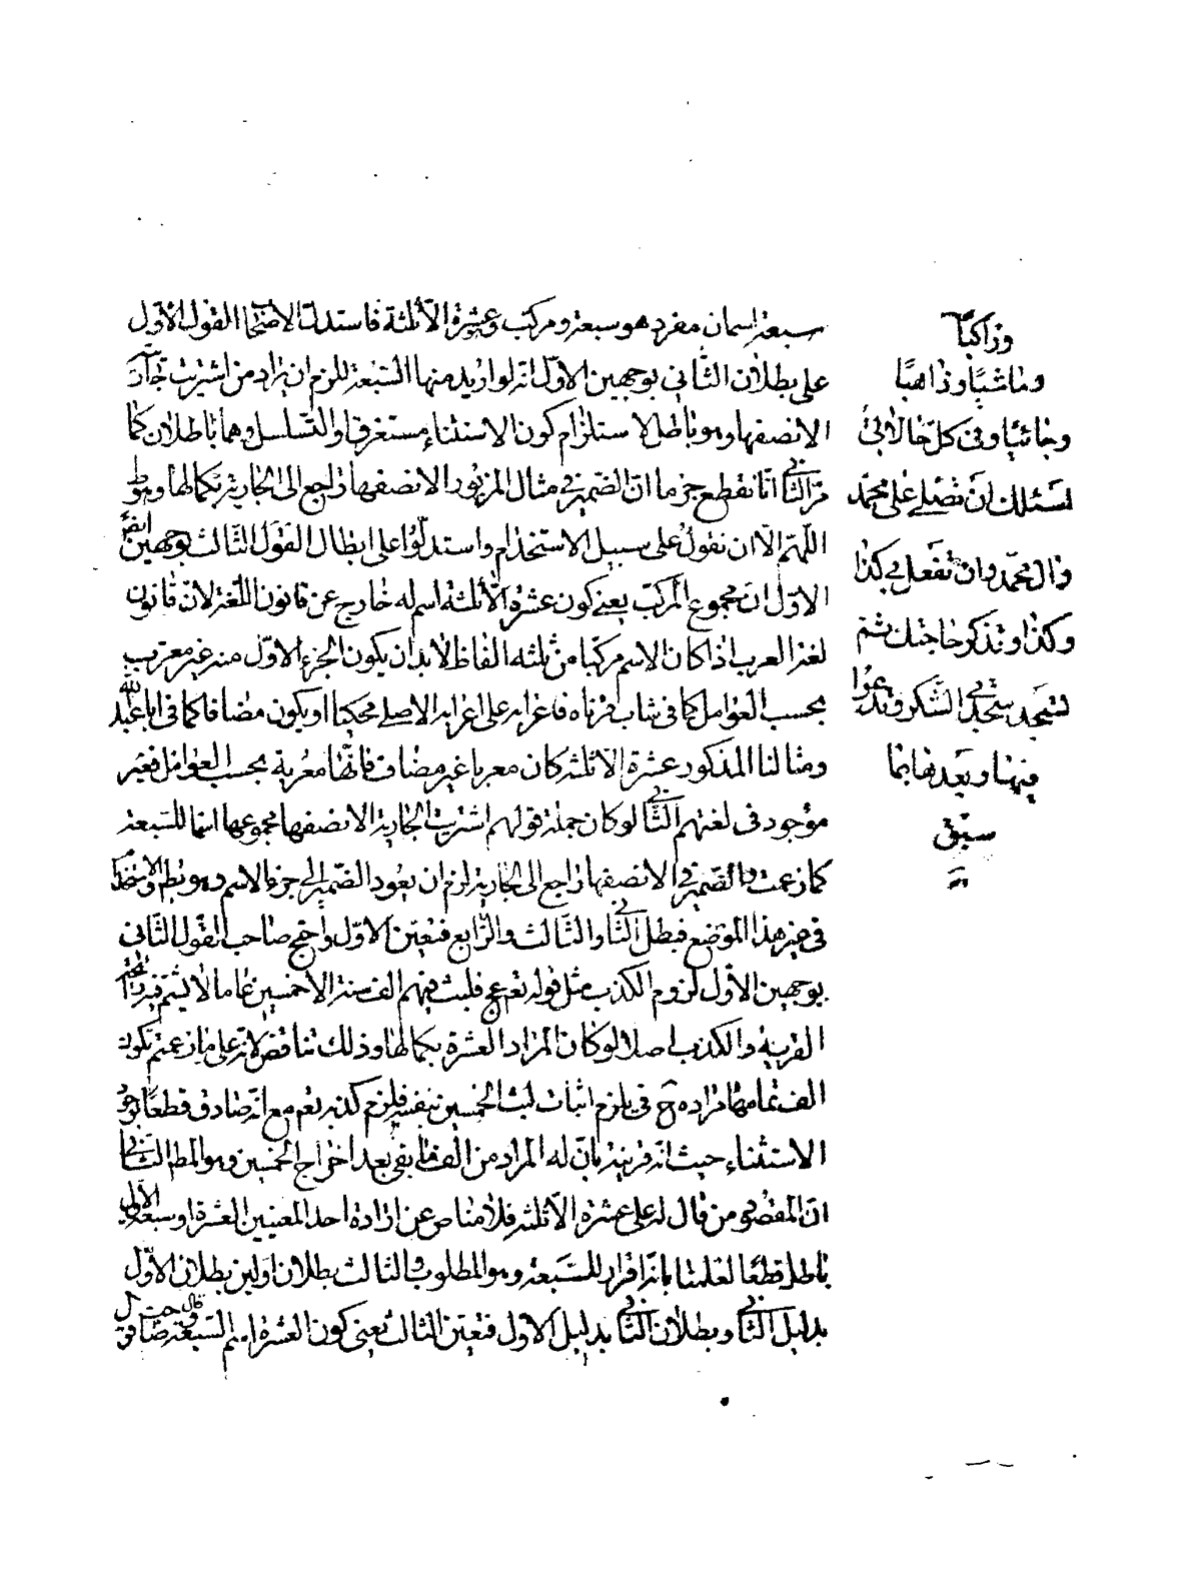 سبعة اسمان مفرد هو سبعة ومركب وعشرة الّا ثلثة فاستدلّ الاصحاب القول الاوّل
على بطلان الثّاني بوجهين الاوّل انّه لو اريد منها السّبعة للزم ان يراد من اشتريت جارية
الا نصفها وهو باطل لاستلزام كون الاستثناء مستغرقا والتّسلسل وهما باطلان كما
مرّ الثّاني انّا نقطع جزما انّ الضّمير في مثال المزبور الا نصفها راجع الى الجارية بكمالها وهو ط
اللّهمّ الّا ان نقول على سبيل الاستخدام واستدلّوا على ابطال القول الثّالث بوجهين ايضا
الاوّل انّ مجموع المركّب يعني كون عشرة الّا ثلثة اسم له خارج عن قانون اللّغة لانّ قانون
لغة العرب اذا كان الاسم مركّبا من ثلثه الفاظ لا بد ان يكون الجزء الاوّل منه غير معرب
بحسب العوامل كما في شاب قرناه فاعرابه على اعرابه الاصلي محكيا او يكون مضافا كما في ابا عبد الله
ومثالنا المذكور عشرة الّا ثلثة كان معربا غير مضاف فانّها معربة بحسب العوامل فغير
موجود في لغتهم الثّاني لو كان جملة قولهم اشتريت الجارية الا نصفها مجموعها اسما للسّبعة
كما زعمت والضّمير في الا نصفها راجع الى الجارية لزم ان يعود الضّمير الى جزء الاسم وهو بط والاستخدام
في غير هذا الموضع فبطل الثّاني والثّالث والرّابع فتعيّن الاوّل واحتج صاحب القول الثّاني
بوجهين الاوّل لزوم الكذب مثل قوله تع فلبث فيهم الف سنة الا خمسين عاما لا يشمّ فيه رايحة
القرينة والكذب اصلا لو كان المراد العشرة بكمالها وذلك تناقض لانّه على ما زعمتم بكون
الف تمامها مراده ح في يلزم اثبات لبث الخمسين بنفسه فلزم كذبه تعم مع انّه صادق قطعا لوجود
الاستثناء حيث انّه قرينة بانّ له المراد من الف ما بقي بعد اخراج الخمسين وهو المط الثّاني
انّ المقصود من قال له علي عشرة الّا ثلثة فلا مناص عن ارادة احد المعنيين العشرة او سبعة الاوّل
باطل قطعا لعلمنا بانّه اقرار للسّبعة وهو المطلوب والثالث بطلان اولين بطلان الاوّل
بدليل الثّاني وبطلان الثّاني بدليل الاوّل فتعيّن الثالث يعني كون العشرة اسم السّبعة
وراكبا
وماشيًا وذاهبًا
وجائيًا وفي كلّ حالاتي
اسئلك ان تصلّي على محمّد
وال محمّد وان تفعل بي كذا
وكذا وتذكر حاجتك ثم
تسجد سجدتي الشّكر وتدعوا
فيها وبعدها بما
سبق